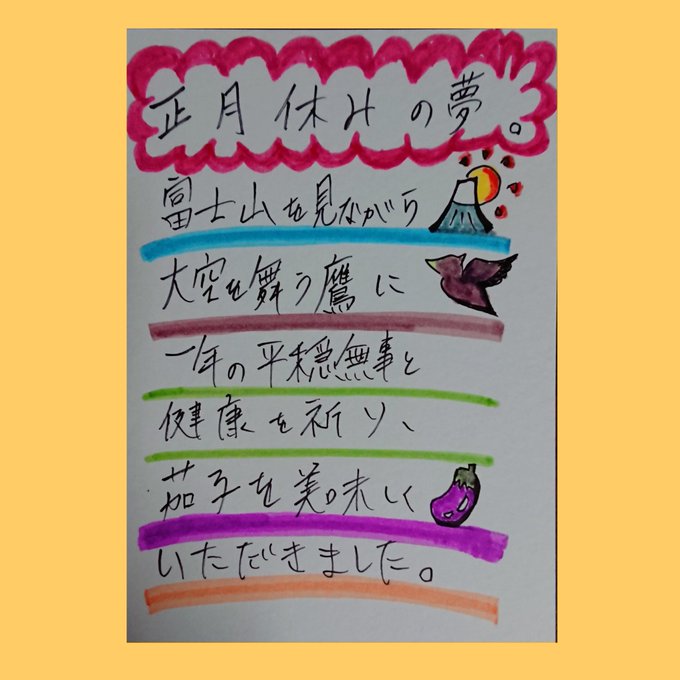 正月休みの夢。
富士山を見ながら
大空を舞う鷹に
一年の平穏無事と
健康を祈り、
茄子を美味しく
いただきました。